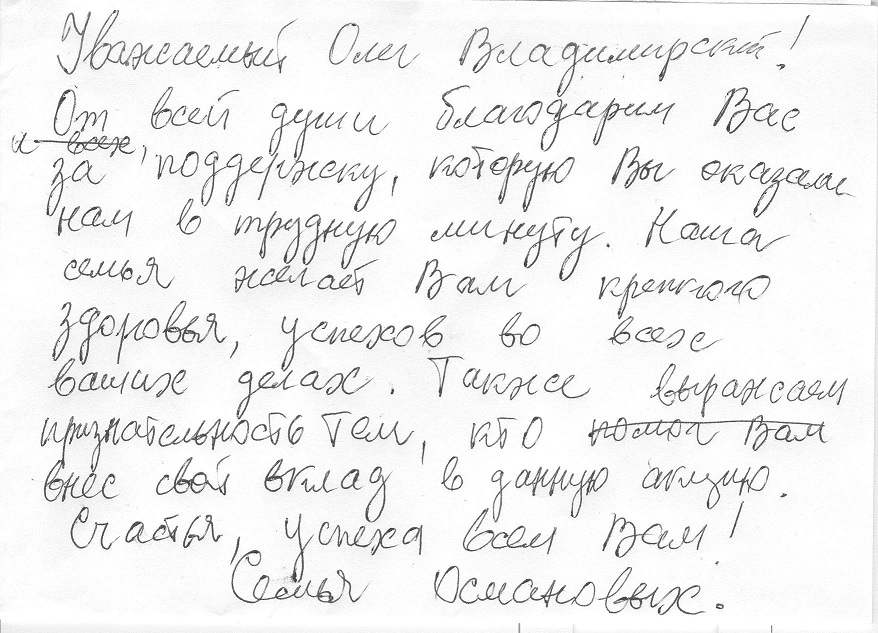 Уважаемый Олег Владимирский!
От всей души благодарим Вас
и всех,
за поддержку, которую Вы оказали
нам в трудную минуту. Наша
семья желает Вам крепкого
здоровья, успехов во всех
ваших делах. Также выражаем
признательность тем, кто помог Вам
внес свой вклад в данную акцию.
Счастья, успеха всем Вам!
Семья Османовых.